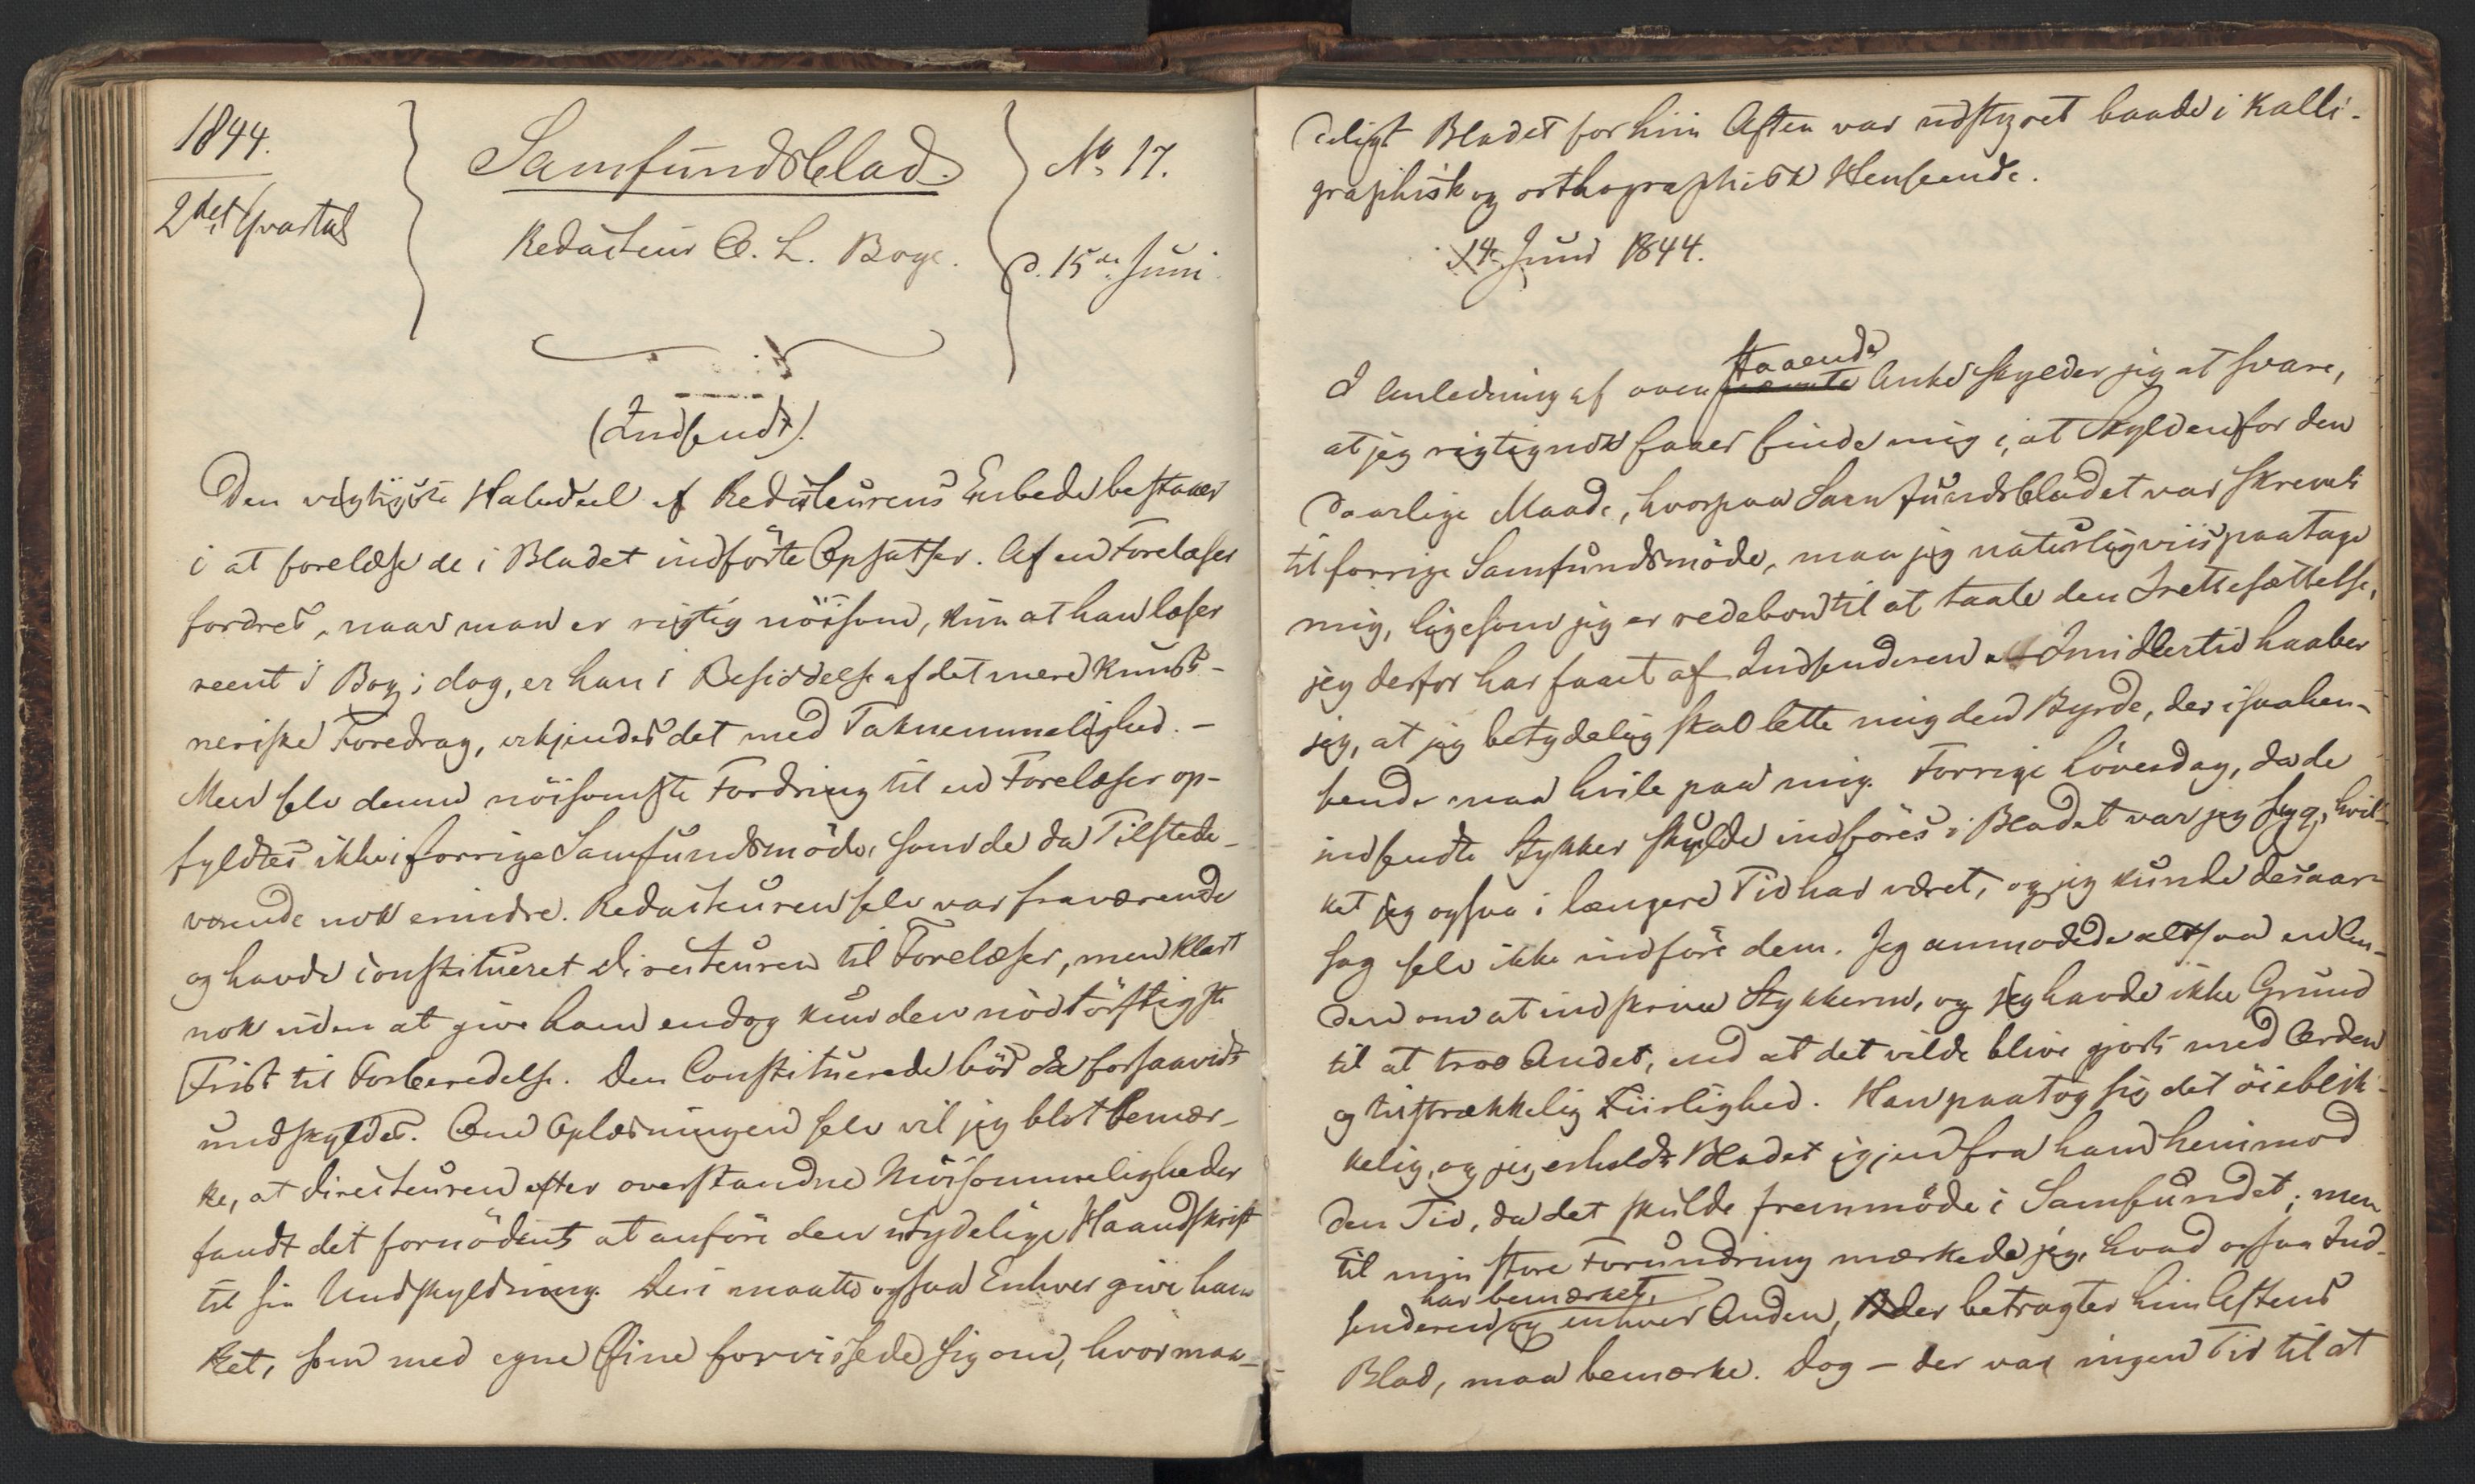 1844.
2det Qvartal
Samfundsblad.
Redacteur O. L. Boge.
No 17.
d. 15de Juni
(Indsendt).
Den vigtigste Halvdeel af Redacteurens Embede bestaaer
i at forelæse de i Bladet indförte Opsatser. Af en Forelæser
fordres, naar man er rigtig nöisom, kun at han læser
reent i Bog; dog, er han i Besiddelse af det mere kunst-
neriske Foredrag, erkjendes det med Taknemmelighed. –
Men selv denne nöisomste Fordring til en Forelæser op-
fyldtes ikke i forrige Samfundsmöde, som de da Tilstede-
værende nok erindre. Redacteuren selv var fraværende
og havde constitueret Directeuren til Forelæser, men klart
nok uden at give ham endog kun den nödtörftigste
Frist til Forberedelse. Den Constituerede bör da forsaavidt
undskyldes. Om Oplæsningen selv vil jeg blot bemær-
ke, at Directeuren efter overstandne Möisommeligheder
fandt det fornödent at anföre den utydelige Haandskrift
til sin Undskyldning. Deri maatte ogsaa Enhver give ham
Ret, som med egne Öine forvissede sig om, hvor maa-
deligt Bladet for hiin Aften var udstyret baade i kalli-
graphisk og orthographisk Henseende.
14 Juni 1844.
I Anledning af oven staaende Anke skylder jeg at svare,
at jeg rigtignok faaer finde mig i, at Skylden for den
daarlige Maade, hvorpaa Samfundsbladet var skrevet
til forrige Samfundsmöde, maa jeg naturligviis paatage
mig, ligesom jeg er redebon til at taale den Irettesættelse,
jeg derfor har faaet af Indsenderen. Imidlertid haaber
jeg, at jeg betydelig skal lette mig den Byrde, der i saahen-
seende maa hvile paa mig. Forrige Löverdag, da de
indsendte Stykker skulde indföres i Bladet var jeg syg, hvil-
ket jeg ogsaa i længere Tid har været, og jeg kunde desaar-
sag selv ikke indföre dem. Jeg anmodede altsaa en An-
den om at indskrive Stykkerne, og jeg havde ikke Grund
til at troe Andet, end at det vilde blive gjort med Orden
og tilstrækkelig Ziirlighed. Han paatog sig det öieblik-
kelig, og jeg erholdt Bladet igjen fra ham henimod
den Tid, da det skulde fremmöde i Samfundet; men
til min store Forundring mærkede jeg, hvad ogsaa Ind-
har bemærket,
senderen og enhver Anden, der betragter hiin Aftens
Blad, maa bemærke. Dog – der var ingen Tid til at